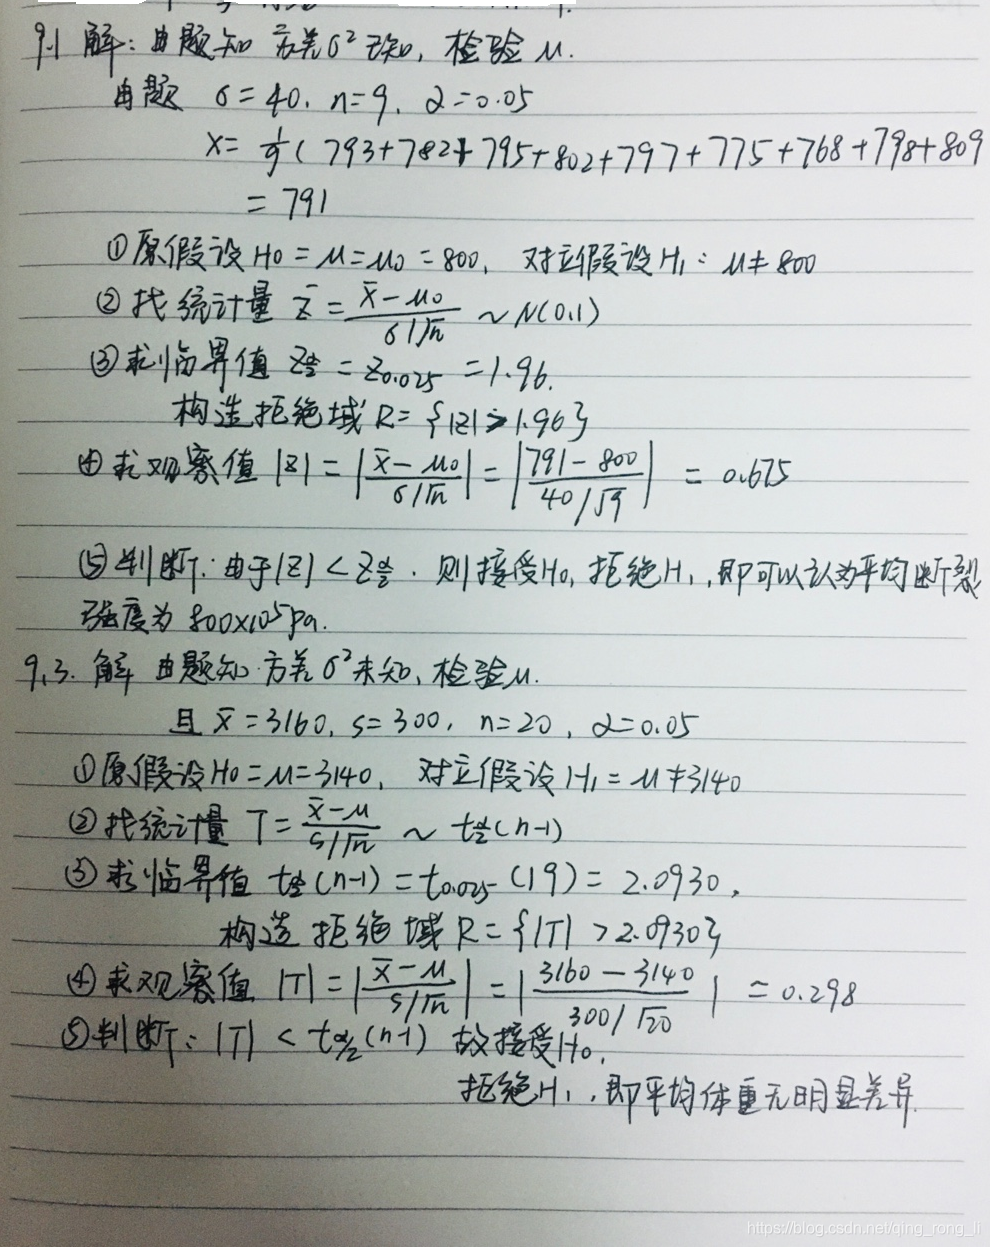 9.1 解:由题知 方差σ²已知,检验μ.
由题 σ=40, n=9, α=0.05
x= 1/9 ( 793+782+795+802+797+775+768+798+809
= 791
①原假设H0=μ=μ0=800, 对立假设H1: μ≠800
②找统计量 Z = (x̄-μ0)/(σ/√n) ~ N(0.1)
③求临界值 Zα/2 = Z0.025 =1.96.
构造拒绝域R={|Z|>1.96}
④求观察值 |Z| = |(x̄-μ0)/(σ/√n)| = |(791-800)/(40/√9)| = 0.675
⑤判断:由于|Z|<Zα/2. 则接受H0, 拒绝H1, 即可以认为平均断裂
强度为 800×10⁵Pa.
9.3. 解 由题知.方差σ²未知,检验μ.
且 x̄=3160, s=300, n=20, α=0.05
①原假设H0=μ=3140, 对立假设H1=μ≠3140
②找统计量 T= (x̄-μ)/(s/√n) ~ tα/2(n-1)
③求临界值 tα/2(n-1)=t0.025(19)=2.0930,
构造拒绝域R={|T|>2.0930}
④求观察值 |T|=|(x̄-μ)/(s/√n)|=|(3160-3140)/(300/√20)| =0.298
⑤判断:|T|<tα/2(n-1) 故接受H0,
拒绝H1,即平均体重无明显差异.
https://blog.csdn.net/qing_rong_li